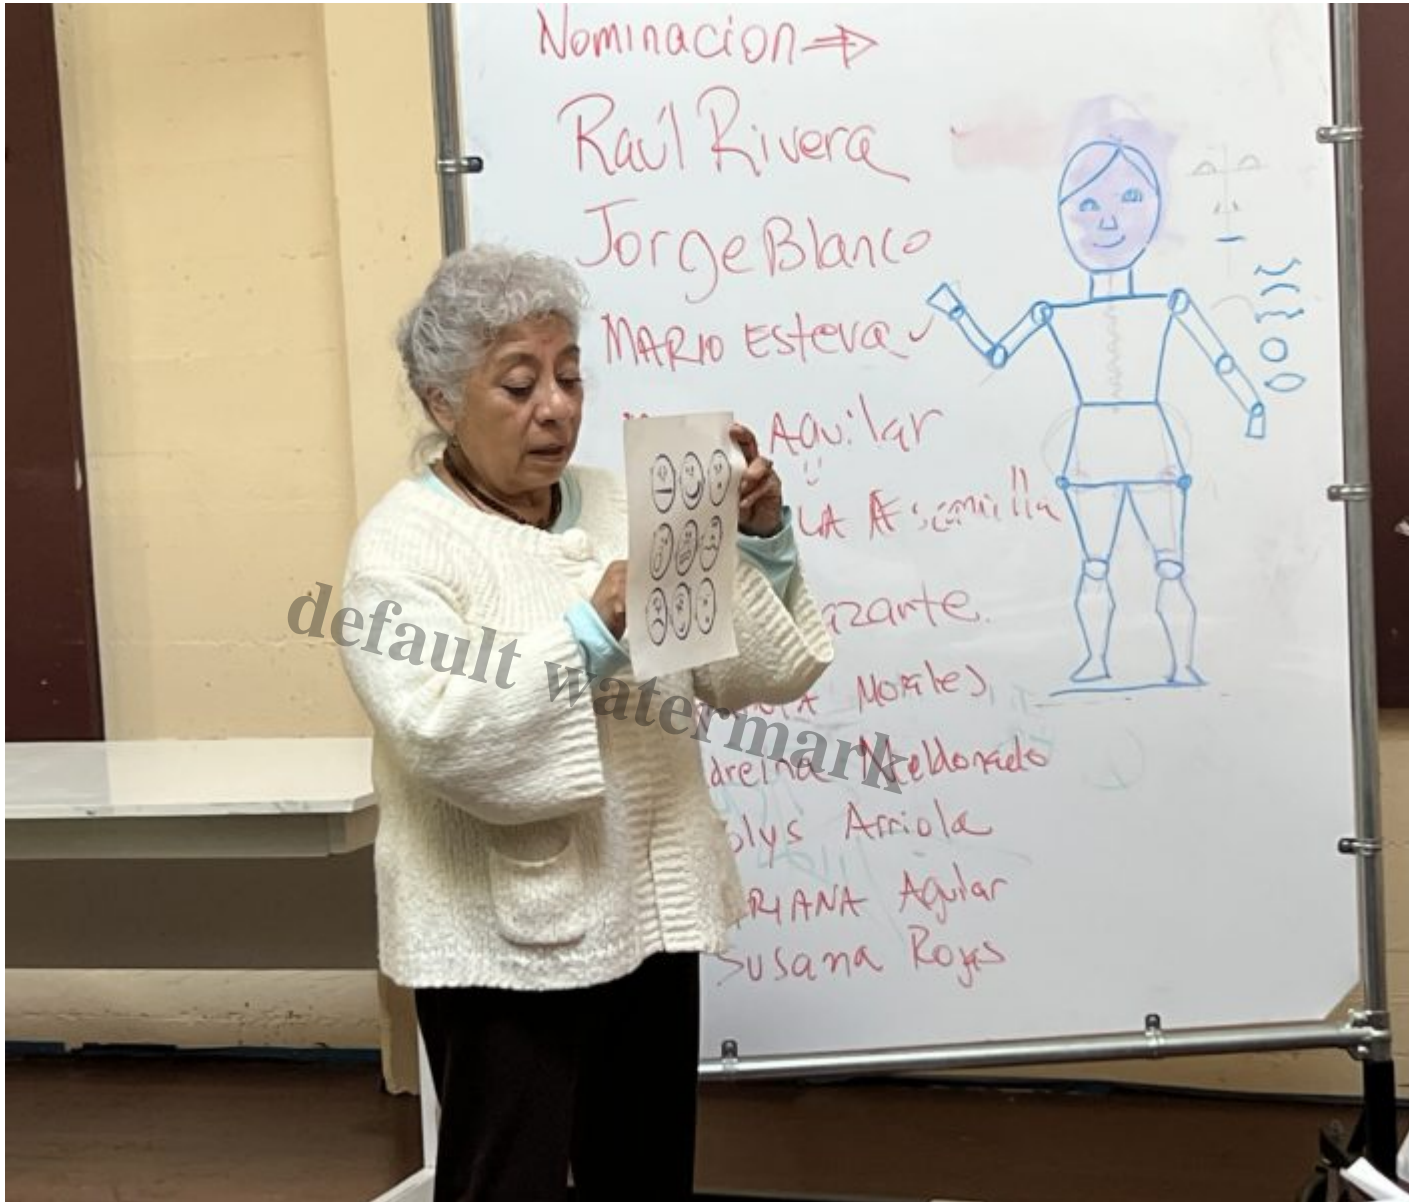 Nominacion →
Raúl Rivera
Jorge Blanco
MARIO Esteva ✓
Aguilar
LA
azarte.
Morales
dreina Maldonado
olys Arriola
RIANA Aguilar
Susana Rojas
default watermark